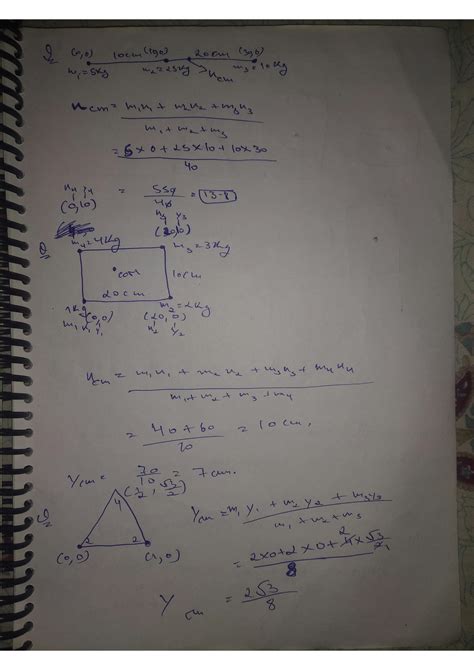 Q (0,0) 10cm (10,0) 20cm (30,0)
m₁=5kg m₂=25kg xcm m₃=10kg
xcm = m₁x₁ + m₂x₂ + m₃x₃
m₁+m₂+m₃
= 5×0+25×10+10×30
40
x₄ y₄ = 550 = 13.8
(0,10) 40
x₃ y₃
(20,0)
m₄=4kg m₃=3kg
Q
com 10cm
20cm
1kg (0,0) (20,0) m₂=2kg
m₁ x₁ y₁ x₂ y₂
xcm = m₁x₁ + m₂x₂ + m₃x₃ + m₄x₄
m₁+m₂+m₃+m₄
= 40+60 = 10cm,
10
Ycm = 70 = 7cm.
10
Q (1/2, √3/2)
4 Ycm = m₁y₁ + m₂y₂ + m₃y₃
m₁+m₂+m₃
2 2
(0,0) (1,0)
= 2×0+2×0+4×√3/2
8
Ycm = 2√3
8